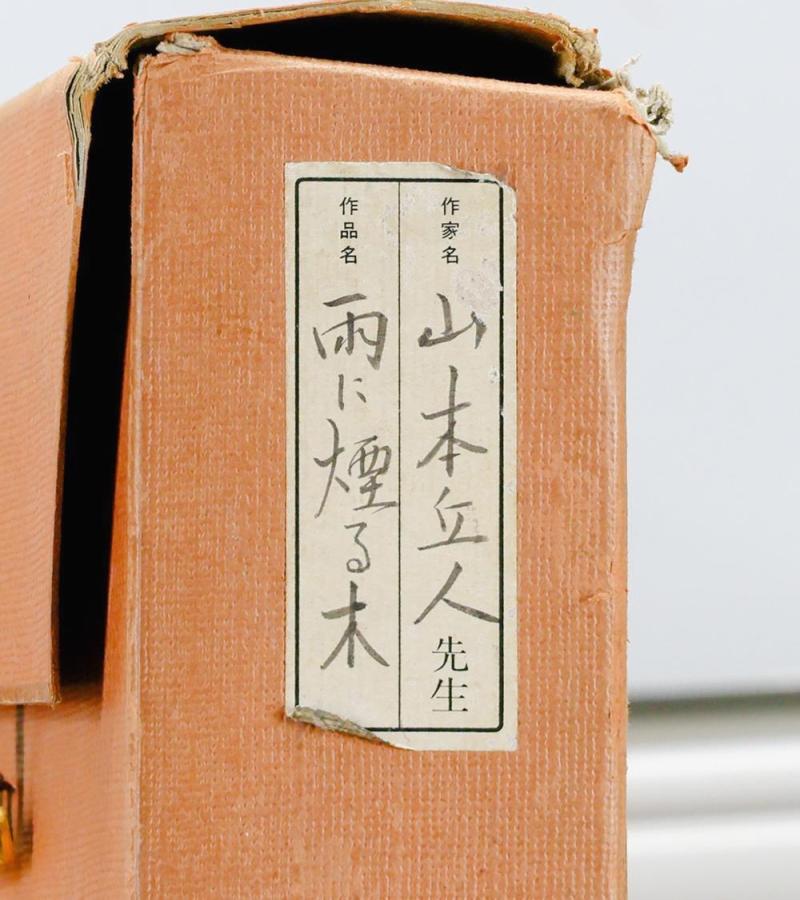 作家名
山本丘人先生
作品名
雨に煙る木